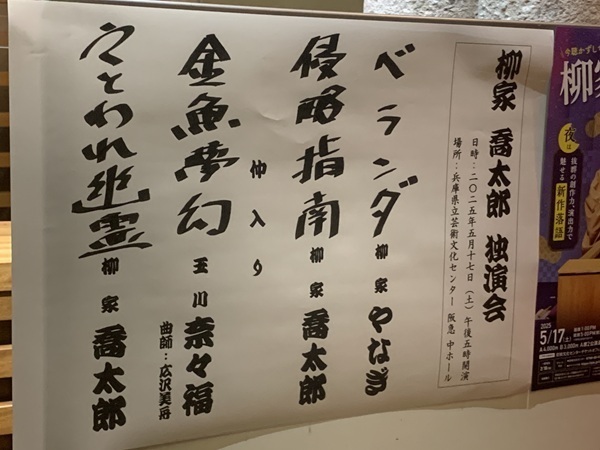 柳家 喬太郎 独演会
日時：二〇二五年五月十七日（土）午後五時開演
場所：兵庫県立芸術文化センター 阪急 中ホール
ベランダ 柳家 やなぎ
侵略指南 柳家 喬太郎
仲入り
金魚夢幻 玉川 奈々福
曲師：広沢美舟
うとわれ幽霊 柳家 喬太郎
今聴かずし
柳家
夜は
抜群の創作力、演出力で
魅せる
新作落語
2025
5/17